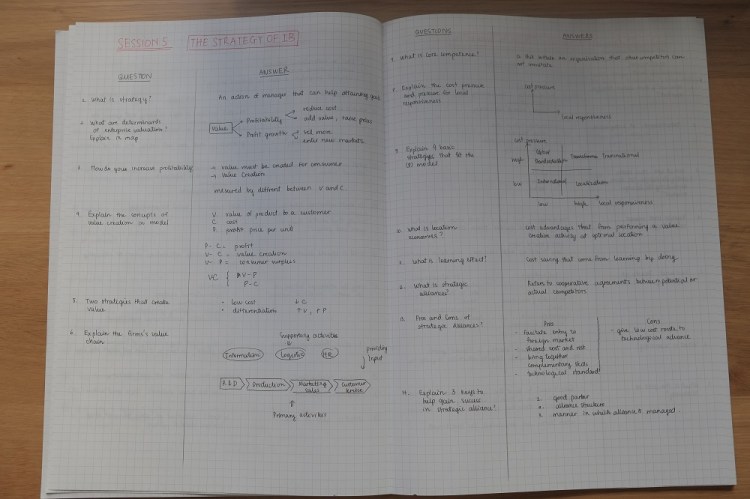 SESSION 5 THE STRATEGY OF IB
QUESTION ANSWER
1. What is strategy? An action of manager that can help attaining goal
2. What are determinants
of enterprise valuation?
Explain in map
Value
Profitability
reduce cost
add value, raise prices
Profit growth
sell more
enter new markets
3. How do you increase profitability
→ value must be created for consumer
→ Value creation
measured by different between V and C
4. Explain the concepts of
value creation in model
V value of product to a customer
C cost
P profit price per unit
P - C = profit
V - C = value creation
V - P = consumer surplus
VC { V - P
P - C
5. Two strategies that create
value
low cost ↓C
differentiation ↑V, ↑P
6. Explain the firm's value
chain
supporting activities
Information Logistics HR
providing
input
R&D Production Marketing
Sales
Customer
service
Primary activities
QUESTIONS ANSWERS
What is core competence? skill within an organization that other competitors can
not imitate
Explain the cost pressure
and pressure for local
responsiveness
cost pressure
local responsiveness
Explain 4 basic
strategies that fit the
model
cost pressure
high
Global
Standardization
Transnational
low
International
Localization
low high local responsiveness
What is location
economies?
cost advantages that from performing a value
creation activity at optimal location
What is learning effect? cost saving that come from learning by doing
What is strategic
alliances?
Refers to cooperative agreements between potential or
actual competitors
Pros and Cons of
strategic alliances?
Pros
- Facilitate entry to
foreign market
- shared cost and risk
- bring together
complementary skills
- technological standard
Cons
- give low cost route to
technological advance
Explain 3 keys to
help gain success
in strategic alliance?
1. good partner
2. alliance structure
3. manner in which alliance is managed